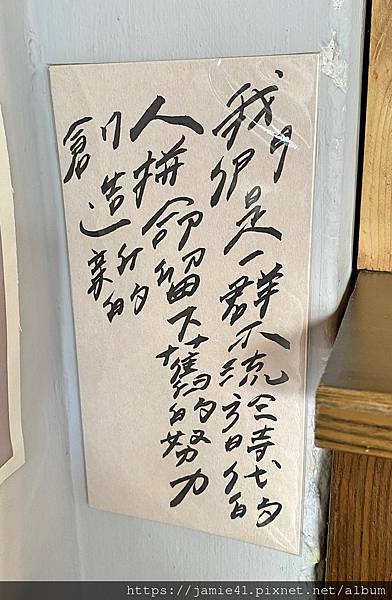 我們是一群不流時代的
人拼命留下舊的努力
創造新的
https://jamie41.pixnet.net/album